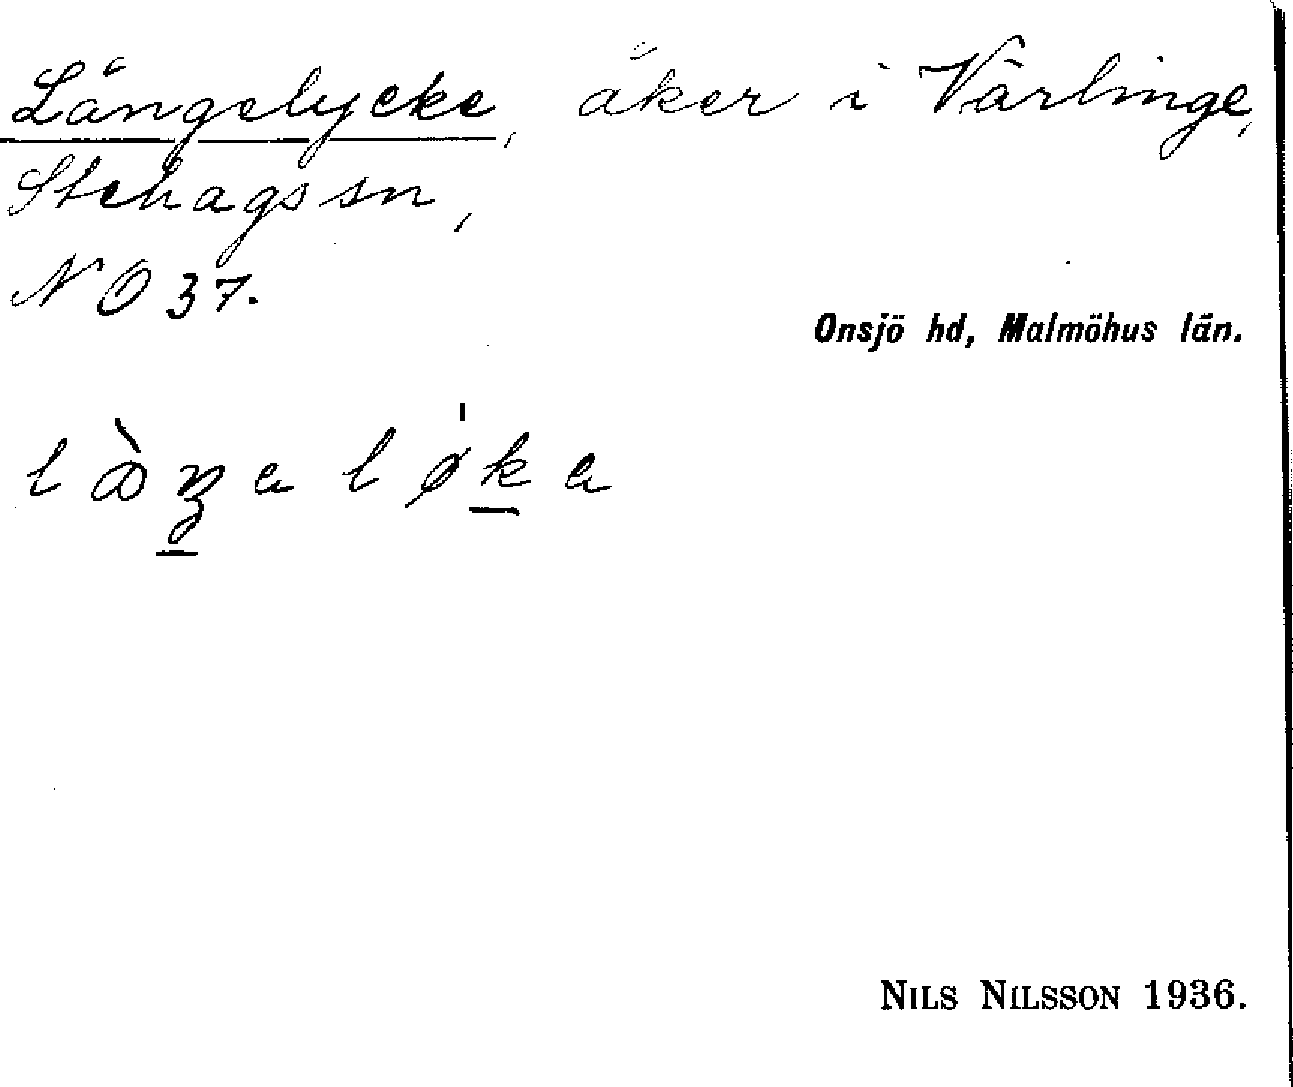 Långelycke, åker i Värlinge,
Stehags sn,
NO 37.
Onsjö hd, Malmöhus län.
NILS NILSSON 1936.